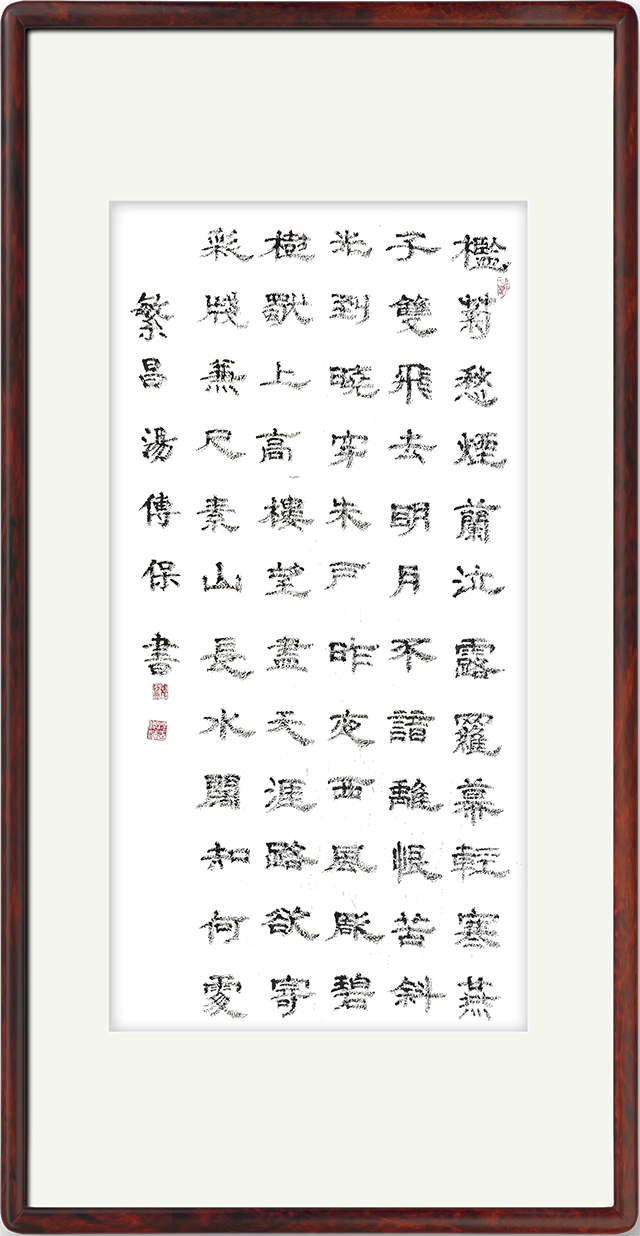 檻菊愁煙蘭泣露羅幕輕寒燕
子雙飛去明月不諳離恨苦斜
光到曉穿朱戶昨夜西風凋碧
樹獨上高樓望盡天涯路欲寄
彩牋兼尺素山長水闊知何處
繁昌湯傳保書